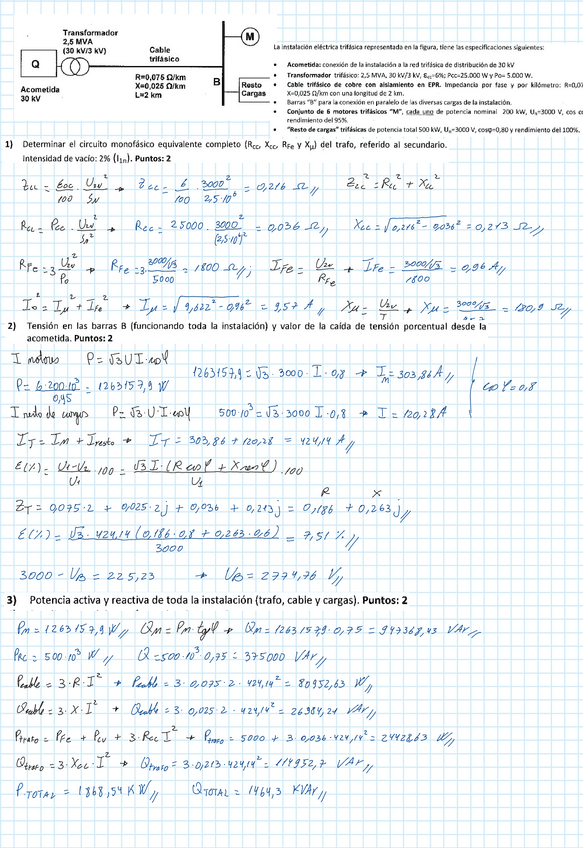 Transformador
2,5 MVA
(30 kV/3 kV)
Cable
trifásico
M
Q
Acometida
30 kV
R=0,075 Ω/km
X=0,025 Ω/km
L=2 km
B
Resto
Cargas
La instalación eléctrica trifásica representada en la figura, tiene las especificaciones siguientes:
• Acometida: conexión de la instalación a la red trifásica de distribución de 30 kV
• Transformador trifásico: 2,5 MVA, 30 kV/3 kV, εcc=6%; Pcc=25.000 W y Po= 5.000 W.
• Cable trifásico de cobre con aislamiento en EPR. Impedancia por fase y por kilómetro: R=0,07
X=0,025 Ω/km con una longitud de 2 km.
• Barras "B" para la conexión en paralelo de las diversas cargas de la instalación.
• Conjunto de 6 motores trifásicos "M", cada uno de potencia nominal 200 kW, Un=3000 V, cos
rendimiento del 95%.
• "Resto de cargas" trifásicas de potencia total 500 kW, Un=3000 V, cosφ=0,80 y rendimiento del 100%.
1) Determinar el circuito monofásico equivalente completo (Rcc, Xcc, RFe y Xμ) del trafo, referido al secundario.
Intensidad de vacío: 2% (I1n). Puntos: 2
Zcc = Ecc/100 · U2N²/SN → Zcc = 6/100 · 3000²/2,5·10⁶ = 0,216 Ω // Zcc² = Rcc² + Xcc²
Rcc = Pcc · U2N²/SN² → Rcc = 25000 · 3000²/(2,5·10⁶)² = 0,036 Ω // Xcc = √(0,216² - 0,036²) = 0,213 Ω //
RFe = 3 U2V²/P0 → RFe = 3 · (3000/√3)²/5000 = 1800 Ω // ; IFe = U2V/RFe → IFe = 3000/√3/1800 = 0,96 A //
I0² = Iμ² + IFe² → Iμ = √(9,622² - 0,96²) = 9,57 A // Xμ = U2V/I → Xμ = 3000/√3 = 180,9 Ω //
2) Tensión en las barras B (funcionando toda la instalación) y valor de la caída de tensión porcentual desde la
acometida. Puntos: 2
I motores P = √3 U I cosφ
P = 6·200·10³/0,95 = 1263157,9 W 1263157,9 = √3 · 3000 · I · 0,8 → Im = 303,86 A // cosφ = 0,8
I resto de cargas P = √3 · U · I · cosφ 500·10³ = √3 · 3000 I · 0,8 → I = 120,28 A
IT = Im + Iresto → IT = 303,86 + 120,28 = 424,14 A //
E(%) = U1-U2/U1 · 100 = √3 I · (R cosφ + X senφ)/U1 · 100
R X
ZT = 0,075·2 + 0,025·2j + 0,036 + 0,213j = 0,186 + 0,263j //
E(%) = √3 · 424,14 (0,186·0,8 + 0,263·0,6)/3000 = 7,51 % //
3000 - UB = 225,23 → UB = 2774,76 V //
3) Potencia activa y reactiva de toda la instalación (trafo, cable y cargas). Puntos: 2
Pm = 1263157,9 W // Qm = Pm · tgφ → Qm = 1263157,9 · 0,75 = 947368,43 VAr //
PRC = 500·10³ W // Q = 500·10³ · 0,75 = 375000 VAr //
Pcable = 3 · R · I² → Pcable = 3 · 0,075 · 2 · 424,14² = 80952,63 W //
Qcable = 3 · X · I² → Qcable = 3 · 0,025 · 2 · 424,14² = 26984,21 VAr //
Ptrafo = PFe + Pcu + 3 · Rcc I² → Ptrafo = 5000 + 3 · 0,036 · 424,14² = 24428,63 W //
Qtrafo = 3 · Xcc · I² → Qtrafo = 3 · 0,213 · 424,14² = 114952,7 VAr //
PTOTAL = 1868,54 KW // QTOTAL = 1464,3 KVAr //